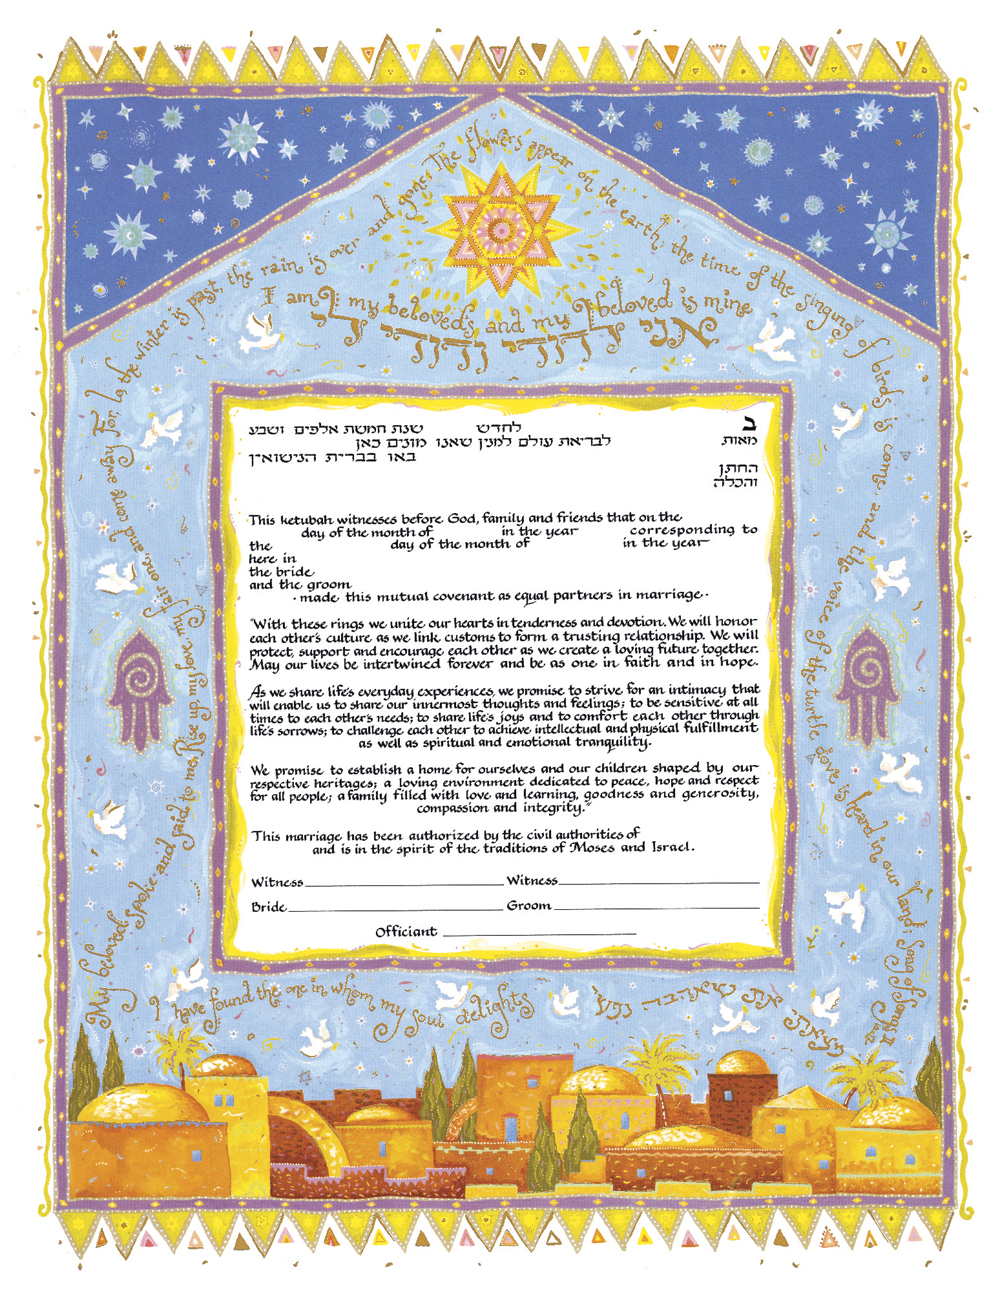 My beloved spoke and said to me, Rise up my love, my fair one, and come away. For, lo, the winter is past, the rain is over and gone; The flowers appear on the earth; the time of the singing of birds is come, and the voice of the turtle dove is heard in our land; Song of Songs II
I am my beloved's and my beloved is mine
אני לדודי ודודי לי
ב לחדש שנת חמשת אלפים ושבע
מאות לבריאת עולם למנין שאנו מונים כאן
באו בברית הנישואין
החתן
והכלה
This ketubah witnesses before God, family and friends that on the
day of the month of in the year corresponding to
the day of the month of in the year
here in
the bride
and the groom
· made this mutual covenant as equal partners in marriage ·
"With these rings we unite our hearts in tenderness and devotion. We will honor
each other's culture as we link customs to form a trusting relationship. We will
protect, support and encourage each other as we create a loving future together.
May our lives be intertwined forever and be as one in faith and in hope.
As we share life's everyday experiences, we promise to strive for an intimacy that
will enable us to share our innermost thoughts and feelings; to be sensitive at all
times to each other's needs; to share life's joys and to comfort each other through
life's sorrows; to challenge each other to achieve intellectual and physical fulfillment
as well as spiritual and emotional tranquility.
We promise to establish a home for ourselves and our children shaped by our
respective heritages; a loving environment dedicated to peace, hope and respect
for all people; a family filled with love and learning, goodness and generosity,
compassion and integrity."
This marriage has been authorized by the civil authorities of
and is in the spirit of the traditions of Moses and Israel.
Witness Witness
Bride Groom
Officiant
I have found the one in whom my soul delights
מצאתי את שאהבה נפשי